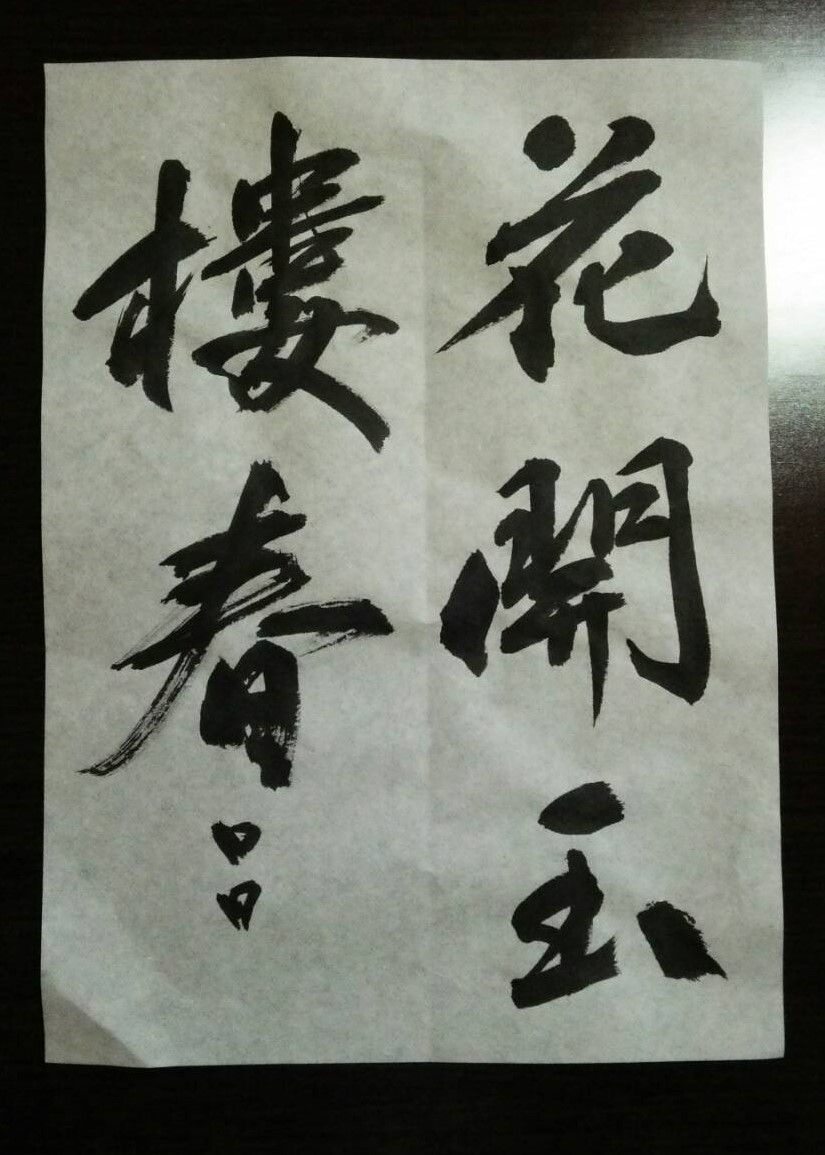 花開玉
樓春